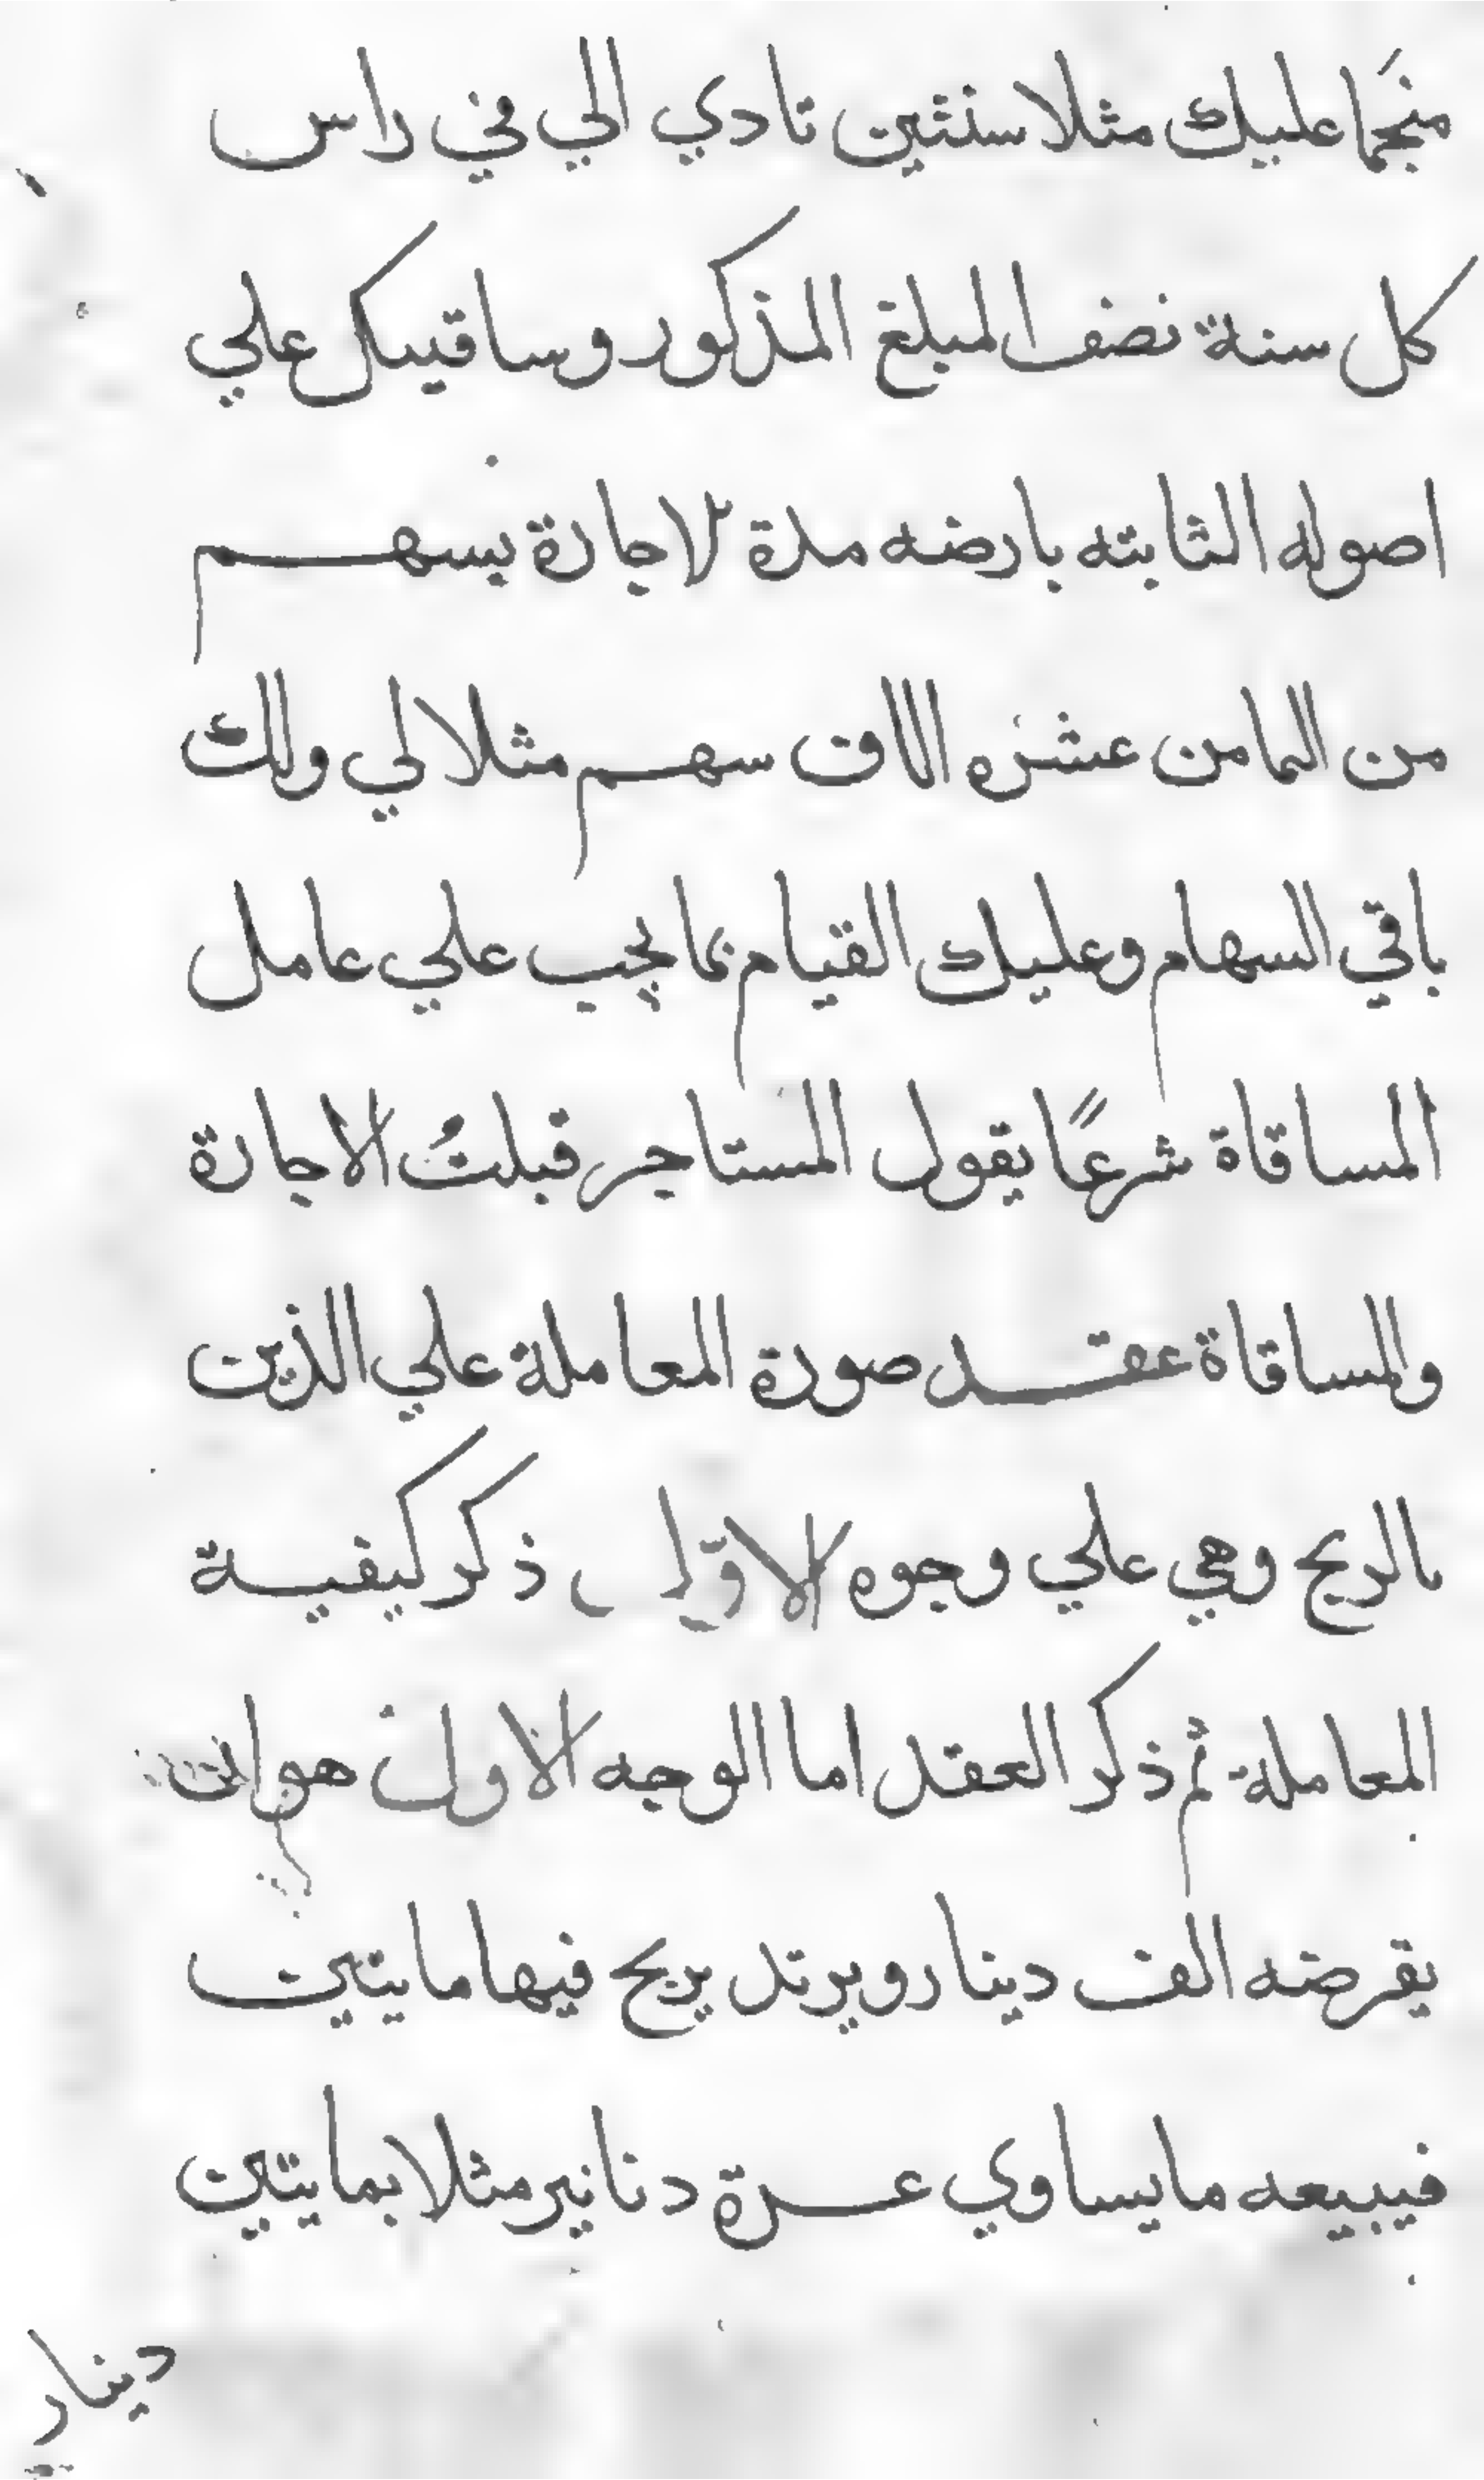 منَجما عليك مثلا سنثين تادي الي في راس
كل سنة نضف المبلغ المذكور وساقيتك علي
اصوله الثابته بارضه مدة الاجارة بسهم
من الما من عشره الاف سهم مثلا لي ولك
باقي السهام وعليك القيام بما يجب علي عامل
المساقاة شرعًا يقول المستاجر قبلتُ الاجارة
والمساقاة عقد صورة المعاملة علي الذين
بالربح وهي علي وجوه الاوّل ذكر كيفية
المعاملة ثم ذكر العقد اما الوجه الاول هو ان
يقرضه الف دينار ويرتد يربح فيها مايتين
فيبيعه ما يساوي عدة دنانير مثلا بمايتين
دينار